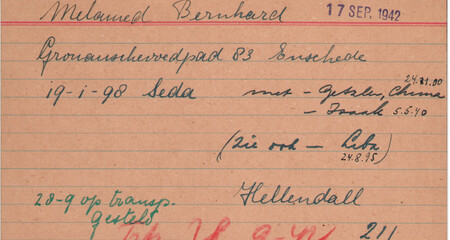 Melamed Bernhard 17 SEP. 1942
Gronauschevoedpad 83 Enschede
19-1-98 Seda met - Getzler, Chuma 24.11.00
- Isaak 5.5.40
(zie ook - Liba
24.8.95)
28-9 op transp. Hellendall
gesteld
211